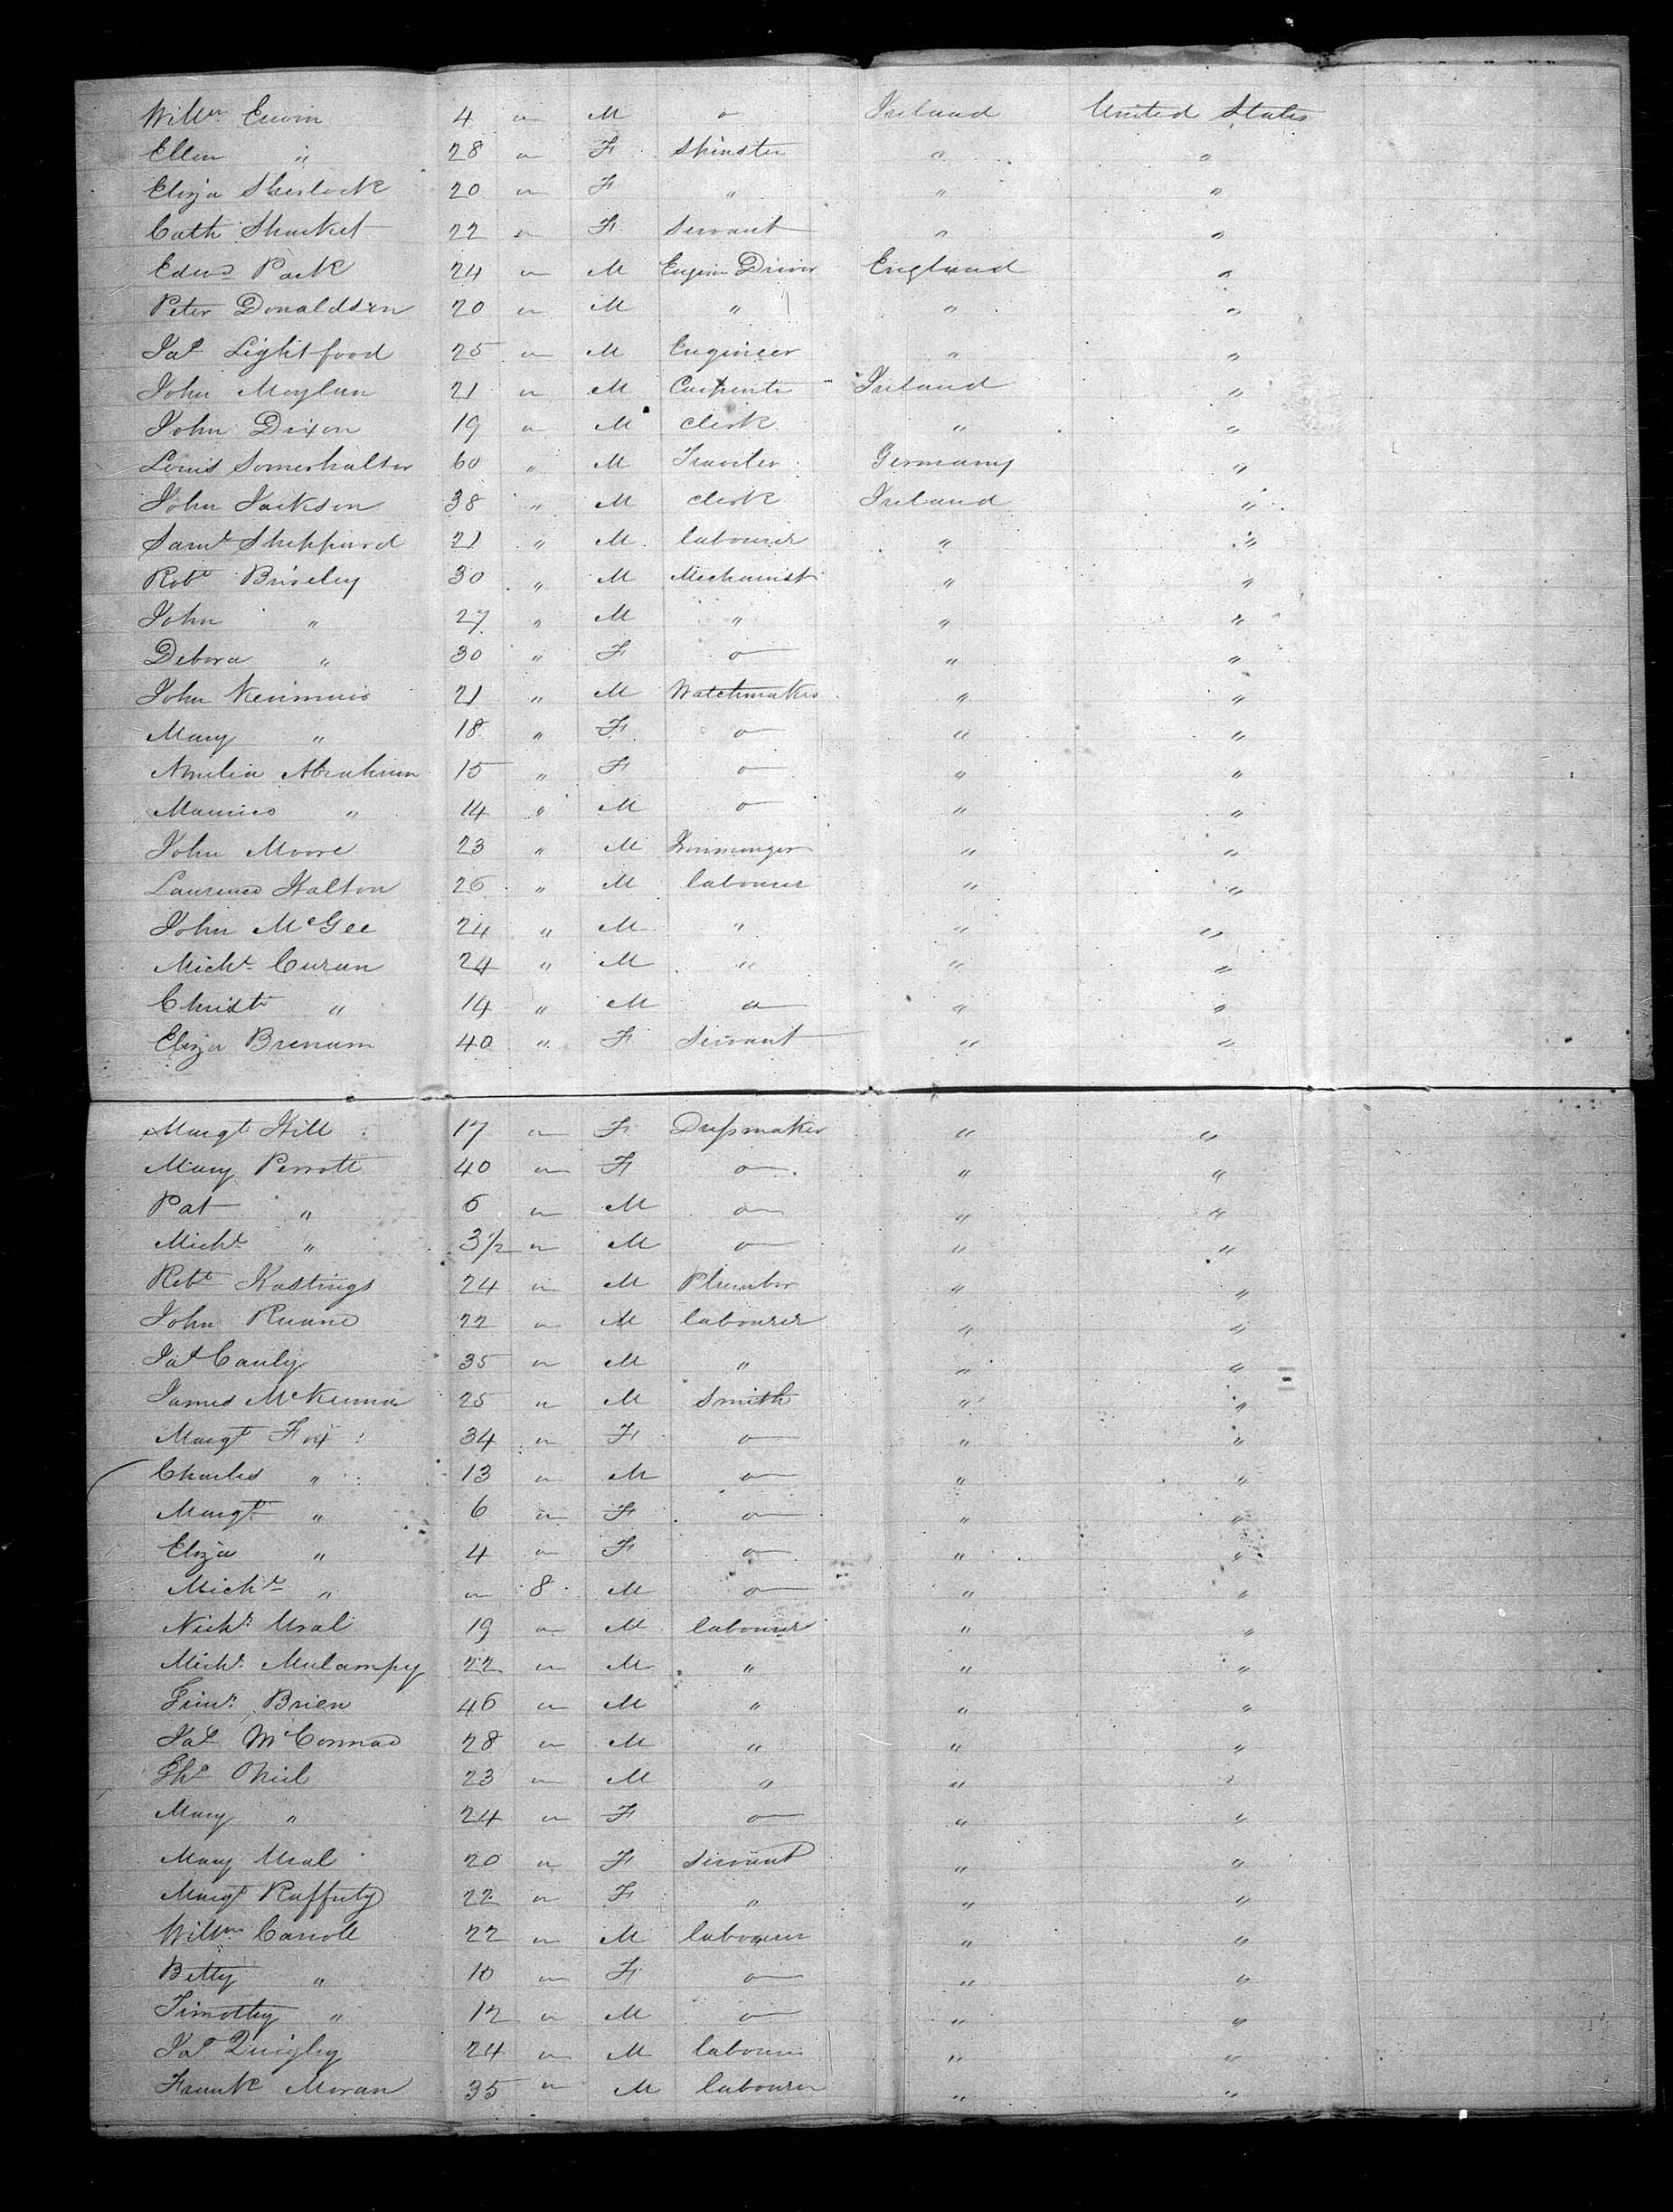 Willm Erwin 4 " M o Ireland United States
Ellen " 28 " F Spinster " "
Eliza Sherlock 20 " F " " "
Cath 22 " F Servant " "
Edwd Park 24 " M Engine Driver England "
Peter Donaldson 20 " M " " "
Jas Lightfood 25 " M Engineer " "
John Moylan 21 " M Carpenter Ireland "
John Dixon 19 " M Clerk " "
Louis Somerhalter 60 " M Traveler Germany "
John Jackson 38 " M Clerk Ireland "
Saml Sheppard 21 " M labourer " "
Robt Briseley 30 " M Mechanist " "
John " 27 " M " " "
Debora " 30 " F o " "
John 21 " M Watchmaker " "
Mary " 18 " F o " "
Amelia Abraham 15 " F o " "
Maurice " 14 " M o " "
John Moore 23 " M Ironmonger " "
Laurence Halton 26 " M labourer " "
John McGee 24 " M " " "
Michl Curan 24 " M " " "
Christr " 14 " M o " "
Eliza Brenam 40 " F Servant " "
Margt Hill 17 " F Dressmaker " "
Mary Perrott 40 " F o " "
Pat " 6 " M o " "
Michl " 3½ " M o " "
Robt Hastings 24 " M Plumber " "
John Ruane 22 " M labourer " "
Jas Cauly 35 " M " " "
James McKenna 25 " M Smith " "
Margt Fox 34 " F o " "
Charles " 13 " M o " "
Margt " 6 " F o " "
Eliza " 4 " F o " "
Michl " " 8 M o " "
Nichs 19 " M labourer " "
Michl Mulampy 22 " M " " "
Timy Brien 46 " M " " "
Jas 28 " M " " "
Ths ONeil 23 " M " " "
Mary " 24 " F o " "
Mary 20 " F Servant " "
Margt Raffuty 22 " F " " "
Willm Carroll 22 " M labourer " "
Betty " 10 " F o " "
Timothy " 12 " M o " "
Jas Quigley 24 " M labourer " "
Frank Moran 35 " M labourer " "